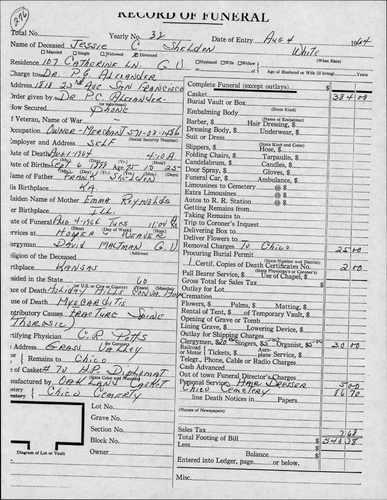 276
RECORD OF FUNERAL
Total No. Yearly No. 32 Date of Entry Aug 4 1964
Name of Deceased Jessie C Sheldon White
Married Single Widowed Divorced
Residence 107 Catherine Ln. G.V. Husband Wife Widow
Charge to Dr. P.G. Alexander Age of Husband or Wife (if living) Years
Address 1818 22nd Ave San Francisco
Order given by Dr P.C. Alexander
How Secured Phone
If Veteran, Name of War
Occupation Owner-Merchant 571-03-1456
(Social Security Number)
Employer and Address Self
Date of Death Aug 1-1964 4:10 A
Date of Birth Sept 6 1889
Name of Father Frank Sheldon
His Birthplace KA
Maiden Name of Mother Emma Reynolds
Her Birthplace Ill.
Date of Funeral Aug 4-1964 Tues 11:00 AM
Services at Hooper & Weaver
Clergyman David Maltman G.V.
Religion of the Deceased
Birthplace Kansas
Resided in the State 60
(Years) (Months)
Place of Death Holiday Hills Conva Home
Cause of Death Myocarditis
Contributory Causes Fracture Spine
Thorasic)
Certifying Physician C.R. Potts
His Address Grass Valley
Remains to Chico
of Casket #70 A.P. Diplomat
Manufactured by Oakland Casket
Cemetery Chico Cemetery
Lot No.
Grave No.
Section No.
Block No.
Owner
Diagram of Lot or Vault
Complete Funeral (except outlays) $
Casket 384 00
Burial Vault or Box
(State Kind)
Embalming Body
(Name of Embalmer)
Barber, Hair Dressing,
Dressing Body, Underwear,
Suit or Dress
(State Kind and Color)
Slippers, Hose,
Folding Chairs, Tarpaulin,
Candelabrum, Candles,
Door Spray, Gloves,
Funeral Car, Ambulance
Limousines to Cemetery @ $
Extra Limousines @ $
Autos to R. R. Station @ $
Getting Remains from
Taking Remains to
Trip to Coroner's Inquest
Delivering Box to
Deliver Flowers to
Removal Charges To Chico 25 00
Procuring Burial Permit
(State Number and District)
1 Certif. Copies of Death Certificate No. 2 00
(State Physician's or Coroner's)
Pall Bearer Service, Use of Chapel,
Gross Total for Sales Tax
Outlay for Lot
Cremation
Flowers, Palms, Matting,
Rental of Tent, of Temporary Vault,
Opening of Grave or Tomb
Lining Grave, Lowering Device,
Outlay for Shipping Charges
Clergymen, $20 Singers, $5 Organist, $5 30 00
Railroad or Motor Tickets, Aero-plane Service,
Telegr., Phone, Cable or Radio Charges
Cash Advanced
Out of town Funeral Director's Charges
Personal Service Hair Dresser 5 00
Chico Cemetery 86 70
line Death Notices in Papers
(Names of Newspapers)
Sales Tax 7 68
Total Footing of Bill $ 540 38
Less
Balance
Entered into Ledger, page or below.
Misc.